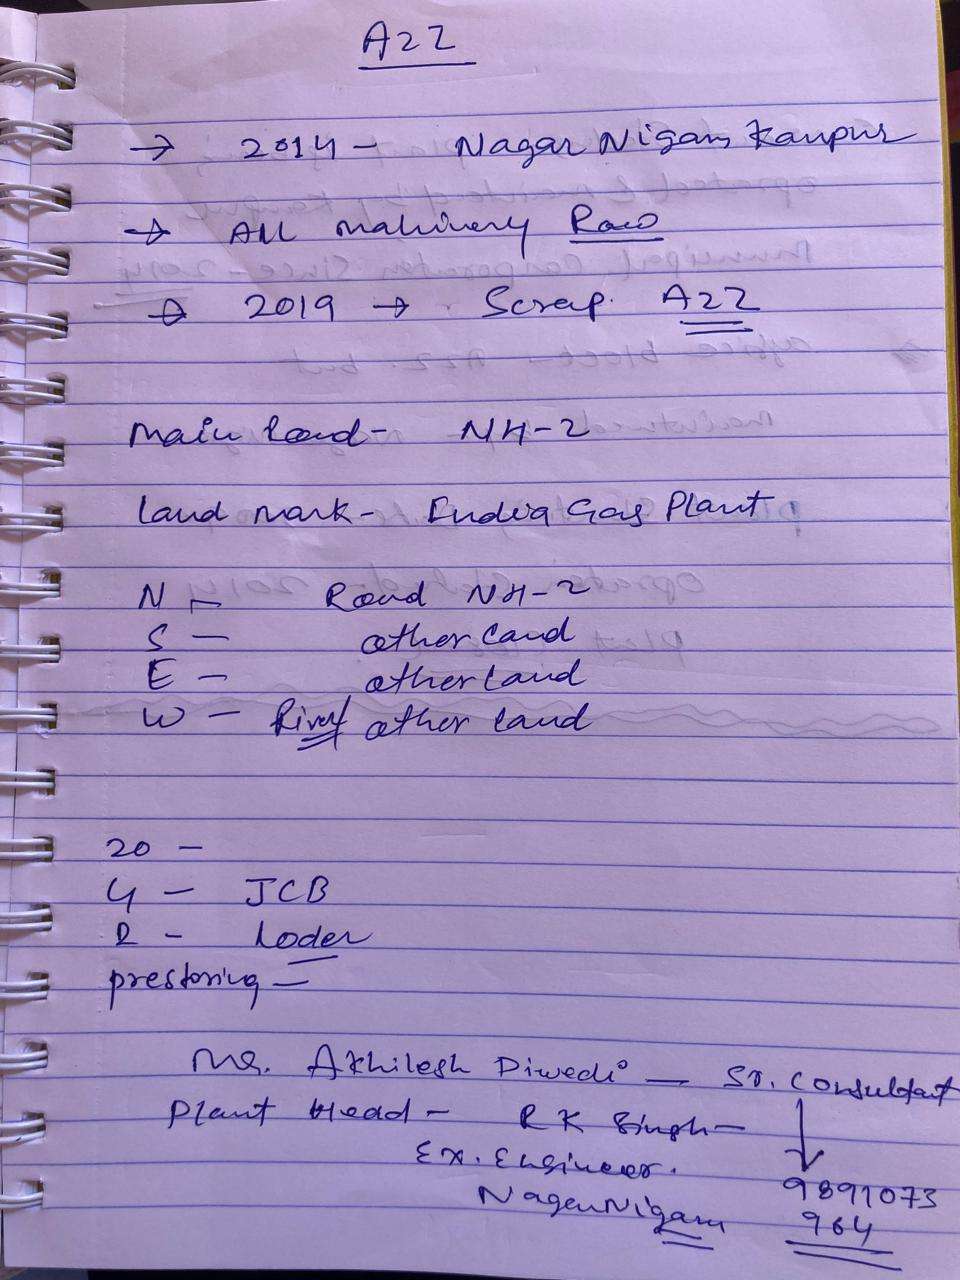 A2Z
→ 2014 - Nagar Nigam Kanpur
→ All mahinery Raw
→ 2019 → Scrap. A2Z
Main Road - NH-2
Land mark - India Gas Plant
N - Road NH-2
S - other land
E - other land
W - River other land
20 -
4 - JCB
2 - Loder
prestoring -
Mr. Akhilesh Diwedi - Sr. Consultant
Plant Head - R K Singh -
Ex. Engineer.
Nagar Nigam
9891073
964